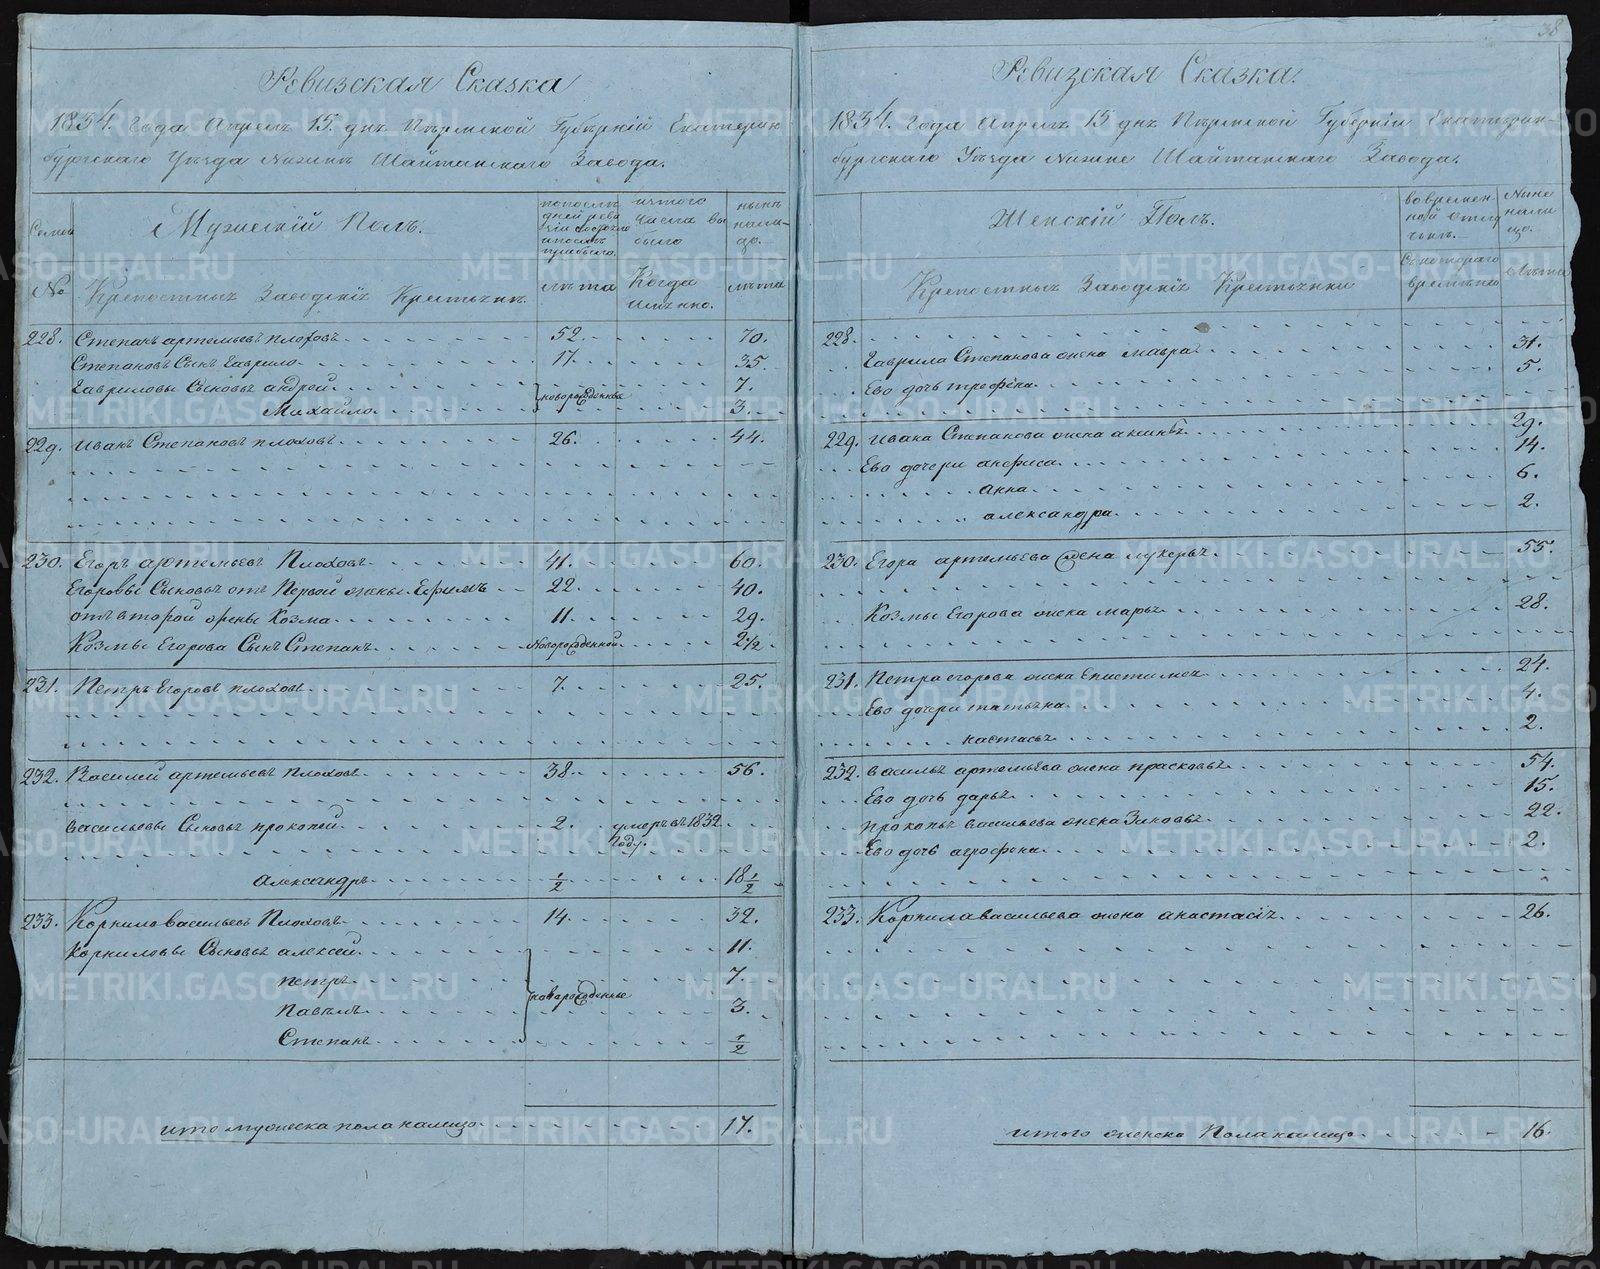 38
Ревизская Сказка
1834. Года Апреля 15. дня Пермской Губерніи Екатерин
бургскаго Уезда Нижне Шайтанскаго Завода.
Семьи
Мужеский Полъ.
попослѣ
дней реви
зіи состояло
и послѣ
прибыло.
изтого
числа вы
было
нынѣ
нали-
цо.
№
Крепостныхъ Заводскихъ Крестьянъ
лѣта
Когда
имянно.
лѣта
228. Степанъ артемьевъ плоховъ 52. 70.
Степановъ Сынъ Гаврило 17. 35.
Гавриловы Сыновья андрей 7.
новорожденныя
Михайло 3.
229. Иванъ Степановъ плоховъ 26. 44.
230. Егоръ артемьевъ Плоховъ 41. 60.
Егоровы Сыновья отъ Первой жены Ефимъ 22. 40.
отъ второй жены Козма 11. 29.
Козмы Егорова Сынъ Степанъ Новорожденной 2 1/2
231. Петръ Егоровъ плоховъ 7. 25.
232. Василей артемьевъ плоховъ 38. 56.
васильевы Сыновья прокопей 2. умеръ въ 1832
Году.
Александръ 1/2 18 1/2
233. Корнило васильевъ Плоховъ 14. 32.
Корниловы Сыновья алексей 11.
петръ 7.
новорожденные
Павелъ 3.
Степанъ 1/2
итого мужеска пола налицо 17.
Ревизская Сказка.
1834. Года Апреля 15 дня Пермской Губерніи Екатерин-
бургскаго Уезда Нижне Шайтанскаго Завода.
Женскій Полъ.
во времен
ной отлу
чкѣ.
Нынѣ
нали
цо.
Крепостныхъ Заводскихъ Крестьянки
Съ котораго
времяни
Лѣта
228.
Гаврила Степанова жена мавра 31.
Ево дочь трефена 5.
229. Ивана Степанова жена аксинья 29.
Ево дочери анфиса 14.
анна 6.
александра 2.
230. Егора артемьева жена лукерья 55.
Козмы Егорова жена марья 28.
231. Петра егорова жена Епистимея 24.
Ево дочери татьяна 4.
настасья 2.
232. василья артемьева жена прасковья 54.
Ево дочь дарья 15.
прокопья васильева жена Зиновья 22.
Ево дочь агрофена 2.
233. Корнила васильева жена анастасія 26.
итого женска Пола налицо 16.
METRIKI.GASO-URAL.RU